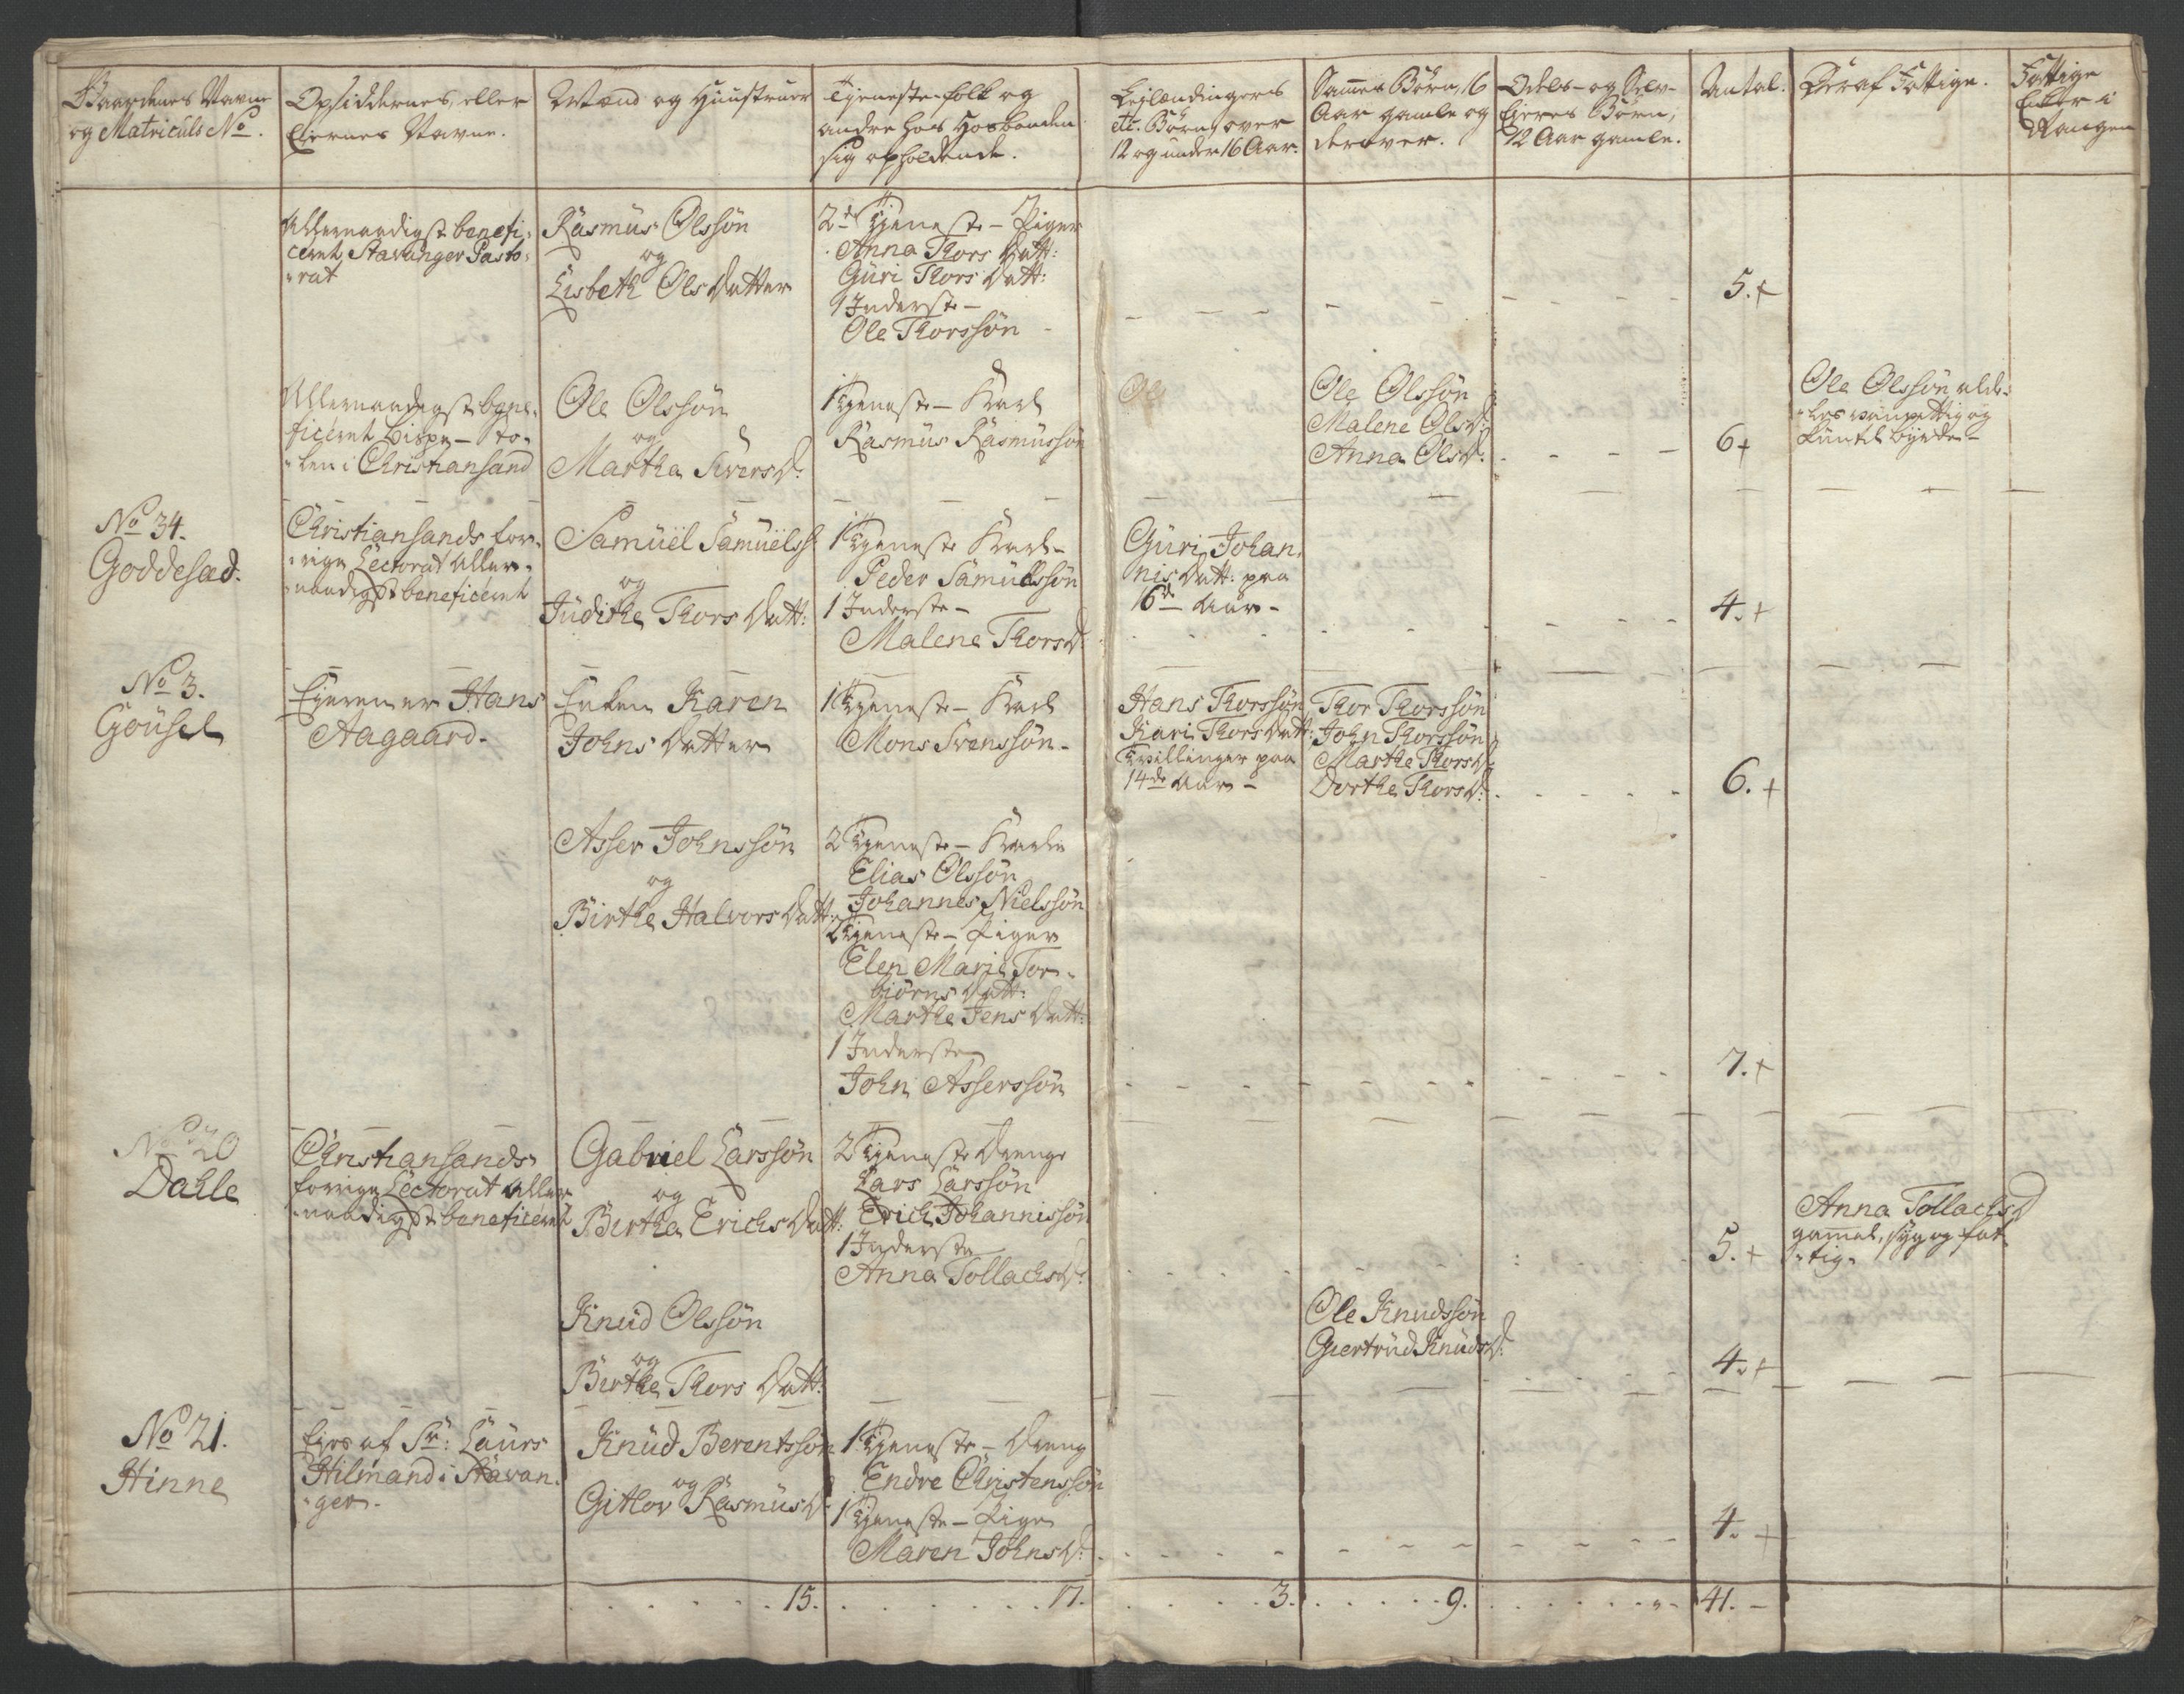 Gaardenes Navne
og Matriculs No.
Opsiddernes, eller
Ejernes Navne.
Mænd og Huustruer
Tjeneste-folk og
andre hos Hosbonden
sig opholdende.
Lejlændingers
etc. Børn, over
12 og under 16 Aar.
Samme Børn, 16
Aar gamle og
derover.
Odels- og Selv-
Ejeres Børn,
12 Aar gamle.
Antal.
Deraf Fattige.
Fattige
Efter i
Allernaadigst benefi-
ceret Stavanger Pasto-
rat
Rasmus Olssøn
og
Lisbeth Olsdatter
2de Tjeneste-Piger
Anna Thors Datt:
Guri Thors Datt:
1 Inderste-
Ole Thorssøn
5.+
Allernaadigst bene-
ficeret Bispe-Sto-
len i Christiansand
Ole Olssøn
og
Martha SiversD:
1 Tjeneste-Karl
Rasmus Rasmussøn
Ole
Ole Olssøn
Malene OlsD:
Anna OlsD:
6+
Ole Olssøn
No 34.
Goddesæd.
Christiansands for-
rige Lectorat aller-
naadigst beneficeret
Samuel Samuelss:
og
Judithe Thors Datt:
1 Tjeneste Karl-
Peder Samuelssøn
1 Inderste-
Malene ThorsD:
Guri Johan-
nis Datt: paa
16de Aar-
4.+
No 3.
Gousel
Ejeren er Hans
Aagaard.
Enken Karen
Johns Datter
1 Tjeneste-Karl
Mons Svenssøn-
Hans Thorssøn
Kari Thors Datt:
Tvillinger paa
14de Aar-
Thor Thorssøn
John Thorssøn
Marthe ThorsD:
Dorthe ThorsD:
6.+
Asser Johnssøn
og
Birthe Halvors Datt:
2 Tjeneste-Karle
Elias Olssøn
Johannes Nielssøn
2 Tjeneste-Piger
Elen Marie Tor-
biørns Datt:
Marthe Jens Datt:
1 Inderste
John Asserssøn
7.+
No 20
Dahle
Christiansands
forrige Lectorat aller-
naadigst beneficeret
Gabriel Larssøn
og
Birtha Erichs Datt:
2 Tjeneste Drenge
Lars Larssøn
Erich Johannissøn
1 Inderste
Anna TollachsD:
5.+
Anna TollachsD
gammel, syg og fat-
tig.
Knud Olssøn
og
Birthe Thors Datt:
Ole Knudssøn
Giertrud KnudsD:
4.+
No 21.
Hinne
Ejes af Sr: Laurs
Hilmand i Stavan-
ger.
Knud Berentssøn
og
Gitlov RasmusD
1 Tjeneste-Dreng
Endre Christenssøn
1 Tjeneste-Pige
Maren JohnsD:
4.+
15.
17.
3.
9.
41.-